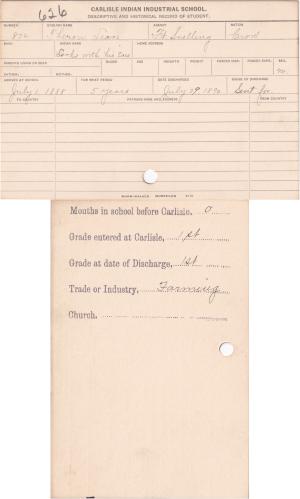 626
CARLISLE INDIAN INDUSTRIAL SCHOOL.
DESCRIPTIVE AND HISTORICAL RECORD OF STUDENT.
NUMBER ENGLISH NAME AGENCY NATION
Ft Snelling Crow
BAND INDIAN NAME HOME ADDRESS
with his Ears
PARENTS LIVING OR DEAD BLOOD AGE HEIGHT WEIGHT FORCED INSP. FORCED EXPR. SEX.
FATHER, MOTHER, M.
ARRIVED AT SCHOOL FOR WHAT PERIOD DATE DISCHARGED CAUSE OF DISCHARGE
July 1 1888 5 years July 29, 1890 Sent for
TO COUNTRY PATRONS NAME AND ADDRESS FROM COUNTRY
Months in school before Carlisle, 0
Grade entered at Carlisle, 1st
Grade at date of Discharge, 1st
Trade or Industry, Farming
Church.